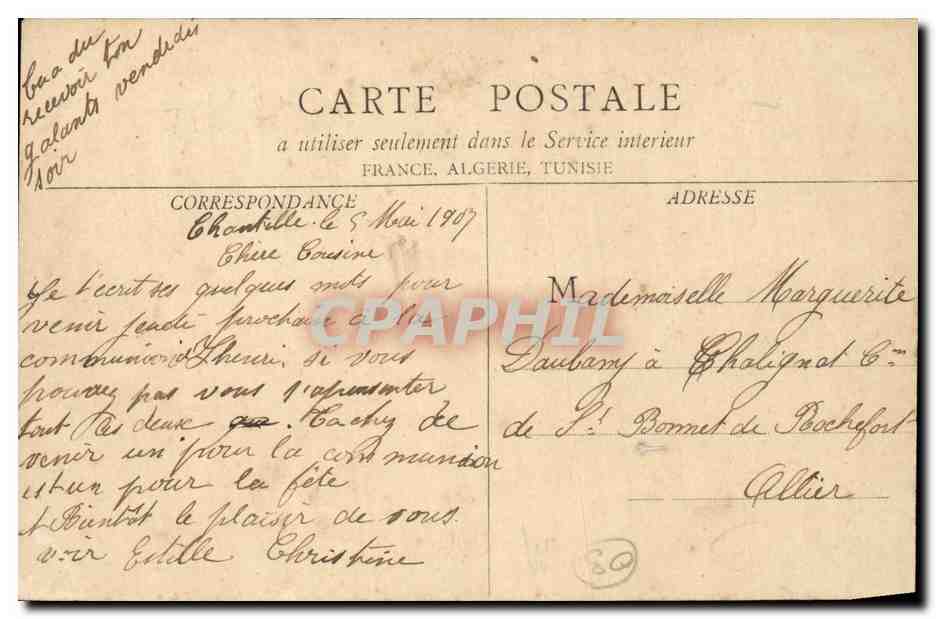 tu a du
recevoir ton
galants vendedis
soir
CARTE POSTALE
a utiliser seulement dans le Service interieur
FRANCE, ALGERIE, TUNISIE
CORRESPONDANCE
Chantelle le 5 Mai 1907
Chère Cousine
Je t'ecrit ses quelques mots pour
venir jeudi prochain a la
communion d'Lhenri. si vous
pouvez pas vous s'apensenter
tout les deux. Tachez de
venir un pour la communion
est un pour la fête
A Bientôt le plaisir de vous
voir Estelle Christine
ADRESSE
Mademoiselle Marguerite
à Chalignat Cne
de St Bonnet de Rochefort
Allier
CPAPHIL
80